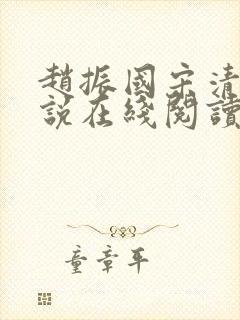 趙振國宋清
說在綫閱讀
童章平